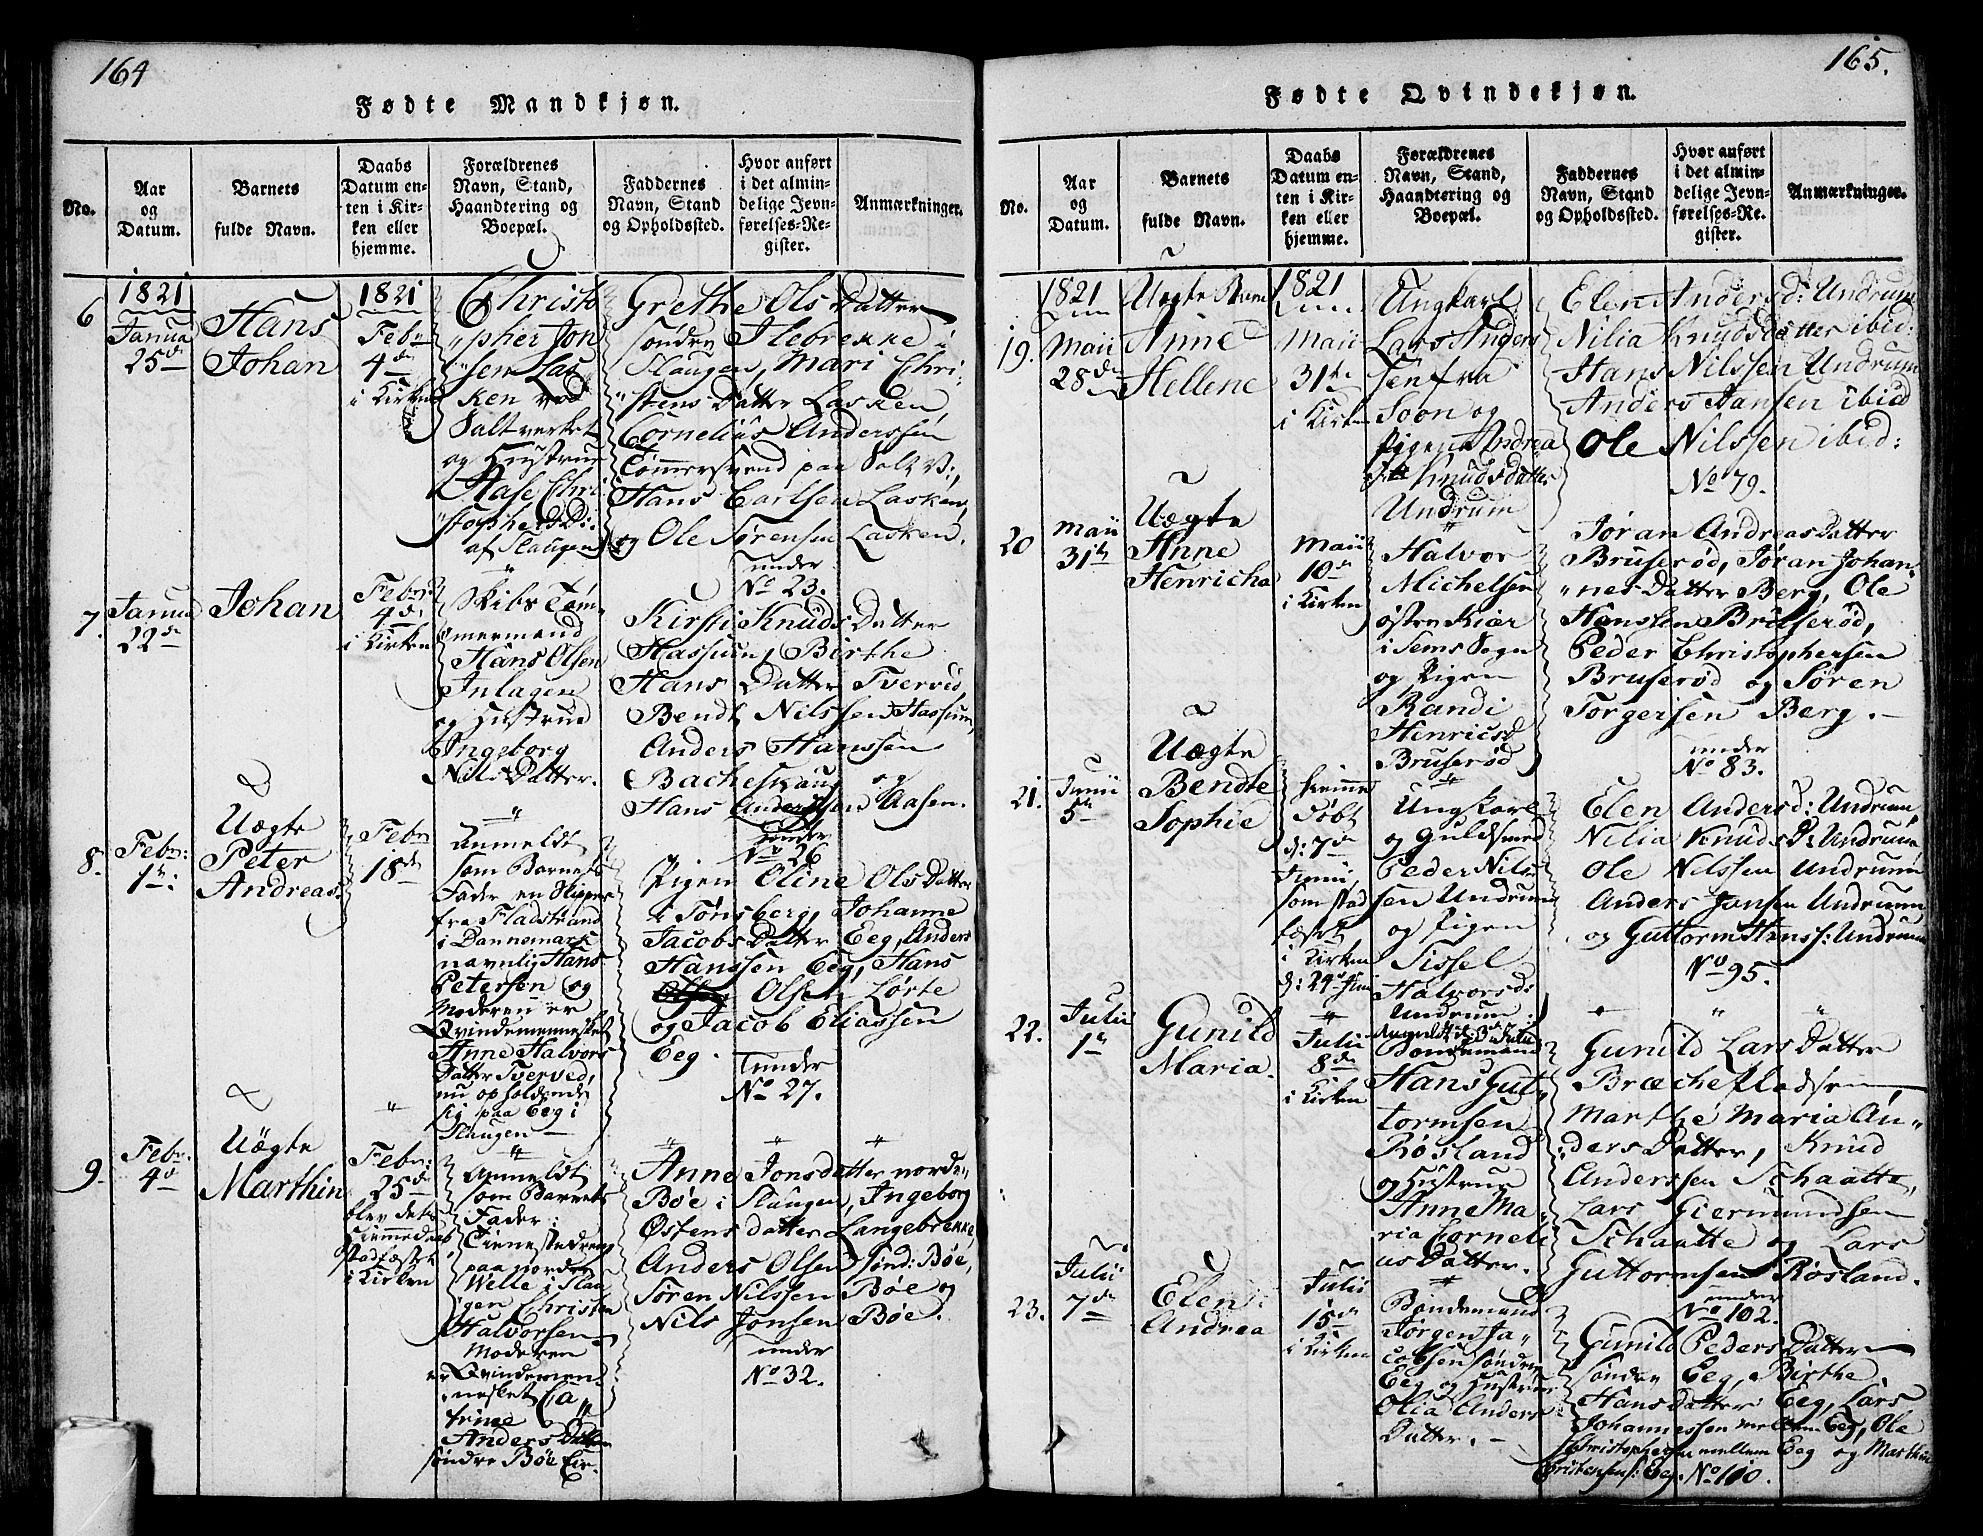 164
Fødte Mandkjøn.
No.
Aar
og
Datum.
Barnets
fulde Navn.
Daabs
Datum en-
ten i Kir-
ken eller
hjemme.
Forældrenes
Navn, Stand,
Haandtering og
Boepæl.
Faddernes
Navn, Stand
og Opholdssted.
Hvor anført
i det almin-
delige Jevn-
førelses-Re-
gister.
Anmærkninger.
6
1821
Janua
25de
Hans
Johan
1821
Febr
4de
i Kirken
Christo
pher Jon
sen Las
ken ved
Saltverket
og Hustrue
Aase Chri
stophersD:
af Slaugen
Grethe Ols Datter
søndre Ilebrekke i
Slaugen, Mari Chri-
stens Datter Lasken,
Cornelius Anderssen
Tømmersvend paa Salt V:,
Hans Carlsen Lasken,
og Ole Sørensen Lasken.
under
No 23.
7.
Januar
22de
Johan
Febr:
4de
i Kirken
Skibs Tøm-
mermand
Hans Olsen
Inlagen
og Hustrue
Ingeborg
Nils Datter.
Kirsti Knuds Datter
Hassum, Birthe
Hans Datter Tverved,
Bendt Nilssen Hassum,
Anders Hanssen
Bacheskaug og
Hans Anderssen Aasen.
under
No 26
8.
Febr:
1te:
Uægte
Peter
Andreas.
Febr
18de
Anmeldt
som Barnets
Fader en Skipper
fra Fladstrand
i Dannemark
navnlig Hans
Petersen og
Moderen er
Qvindemennesket
Anne Halvors
Datter Tverved,
nu opholdende
sig paa Eeg i
Slaugen
Pigen Oline Ols Datter
i Tønsberg, Johanne
Jacobs Datter Eeg, Anders
Hanssen Eeg, Hans
Olsen Lørte
og Jacob Eliassen
Eeg.
under
No 27.
9.
Febr.
4de
Uægte
Marthin
Febr:
25de
blev dets
Hiemmedaab
stadfæstet
i Kirken
Anmeldt
som Barnets
Fader:
Tienestedreng
paa nordre
Welle i Slau
gen Christen
Halvorsen
Moderen
er Qvindemen
nesket Ca
trine
Anders Datter
søndre Bøe
Anne Jonsdatter nordre
Bøe i Slaugen, Ingeborg
Østens datter Langebrekke,
Anders Olsen sønd: Bøe,
Søren Nilssen Bøe og
Nils Jonsen Bøe.
under
No 32.
165.
Fødte Qvindekjøn.
No.
Aar
og
Datum.
Barnets
fulde Navn.
Daabs
Datum en-
ten i Kir-
ken eller
hjemme.
Forældrenes
Navn, Stand,
Haandtering og
Boepæl.
Faddernes
Navn, Stand
og Opholdssted.
Hvor anført
i det almin-
delige Jevn-
førelses-Re-
gister.
Anmærkninger.
19.
1821
Maii
28de
Uægte Barn
Anne
Hellene
1821
Maii
31te
i Kirken
Ungkarl
Lars Anders
sen fra
Soon og
Pigen Andrea
Knudsdatter
Undrum
Elen Andersd: Undrum
Nilia Knudsdatter ibid:
Hans Nilssen Undrum
Anders Jansen ibid
Ole Nilssen ibid:
No 79.
20
Maii
31te
Uægte
Anne
Henricha
Maii
10de
i Kirken
Halvor
Michelsen
østen Kiær
i Sems Sogn
og Pigen
Randi
Henricsd
Bruserød
Jøran Andreas Datter
Bruserød, Jøran Johan-
nes Datter Berg, Ole
Hanssen Bruserød,
Peder Christophersen
Bruserød og Søren
Torgersen Berg.
under
No 83.
21.
Junii
5te
Uægte
Bendte
Sophie
hiemme
Døbt
d: 7de
Junii
som stad
fæstet
i Kirken
d: 24de Juni
Ungkarl
og Guldsmed
Peder Nils
sen Undrum
og Pigen
Sissel
Halvorsd:
Undrum.
Elen Andersd: Undrum,
Nilia Knuds D: Undrum
Ole Nilssen Undrum
Anders Jansen Undrum
og Guttorm Hanss: Undrum
No 95.
22.
Julii
1te
Gunild
Maria.
Julii
8de
i Kirken
Anmeldt d: 3de Julii
Bondemand
Hans Gut
tormsen
Røsland
og Hustrue
Anne Ma-
ria Corneli
us Datter.
Gunild Lars Datter
Bræchepladsen,
Marthe Maria An-
ders Datter, Knud
Anderssen Schaatte,
Lars Giermundsen
Schaatte og Lars
Guttormsen Røsland.
under
No 102.
23.
Julii
7de
Elen
Andrea
Julii
15de
i Kirken
Bondemand
Jørgen Ja-
cobsen søndre
Eeg og Hustrue
Olia Anders
Datter.
Gunild Peders Datter
søndre Eeg, Birthe
Hans Datter Eeg, Lars
Johannessen mellem Eeg, Ole
Christophersen mellem Eeg og Marthin
Christensens: Eeg. No 110.